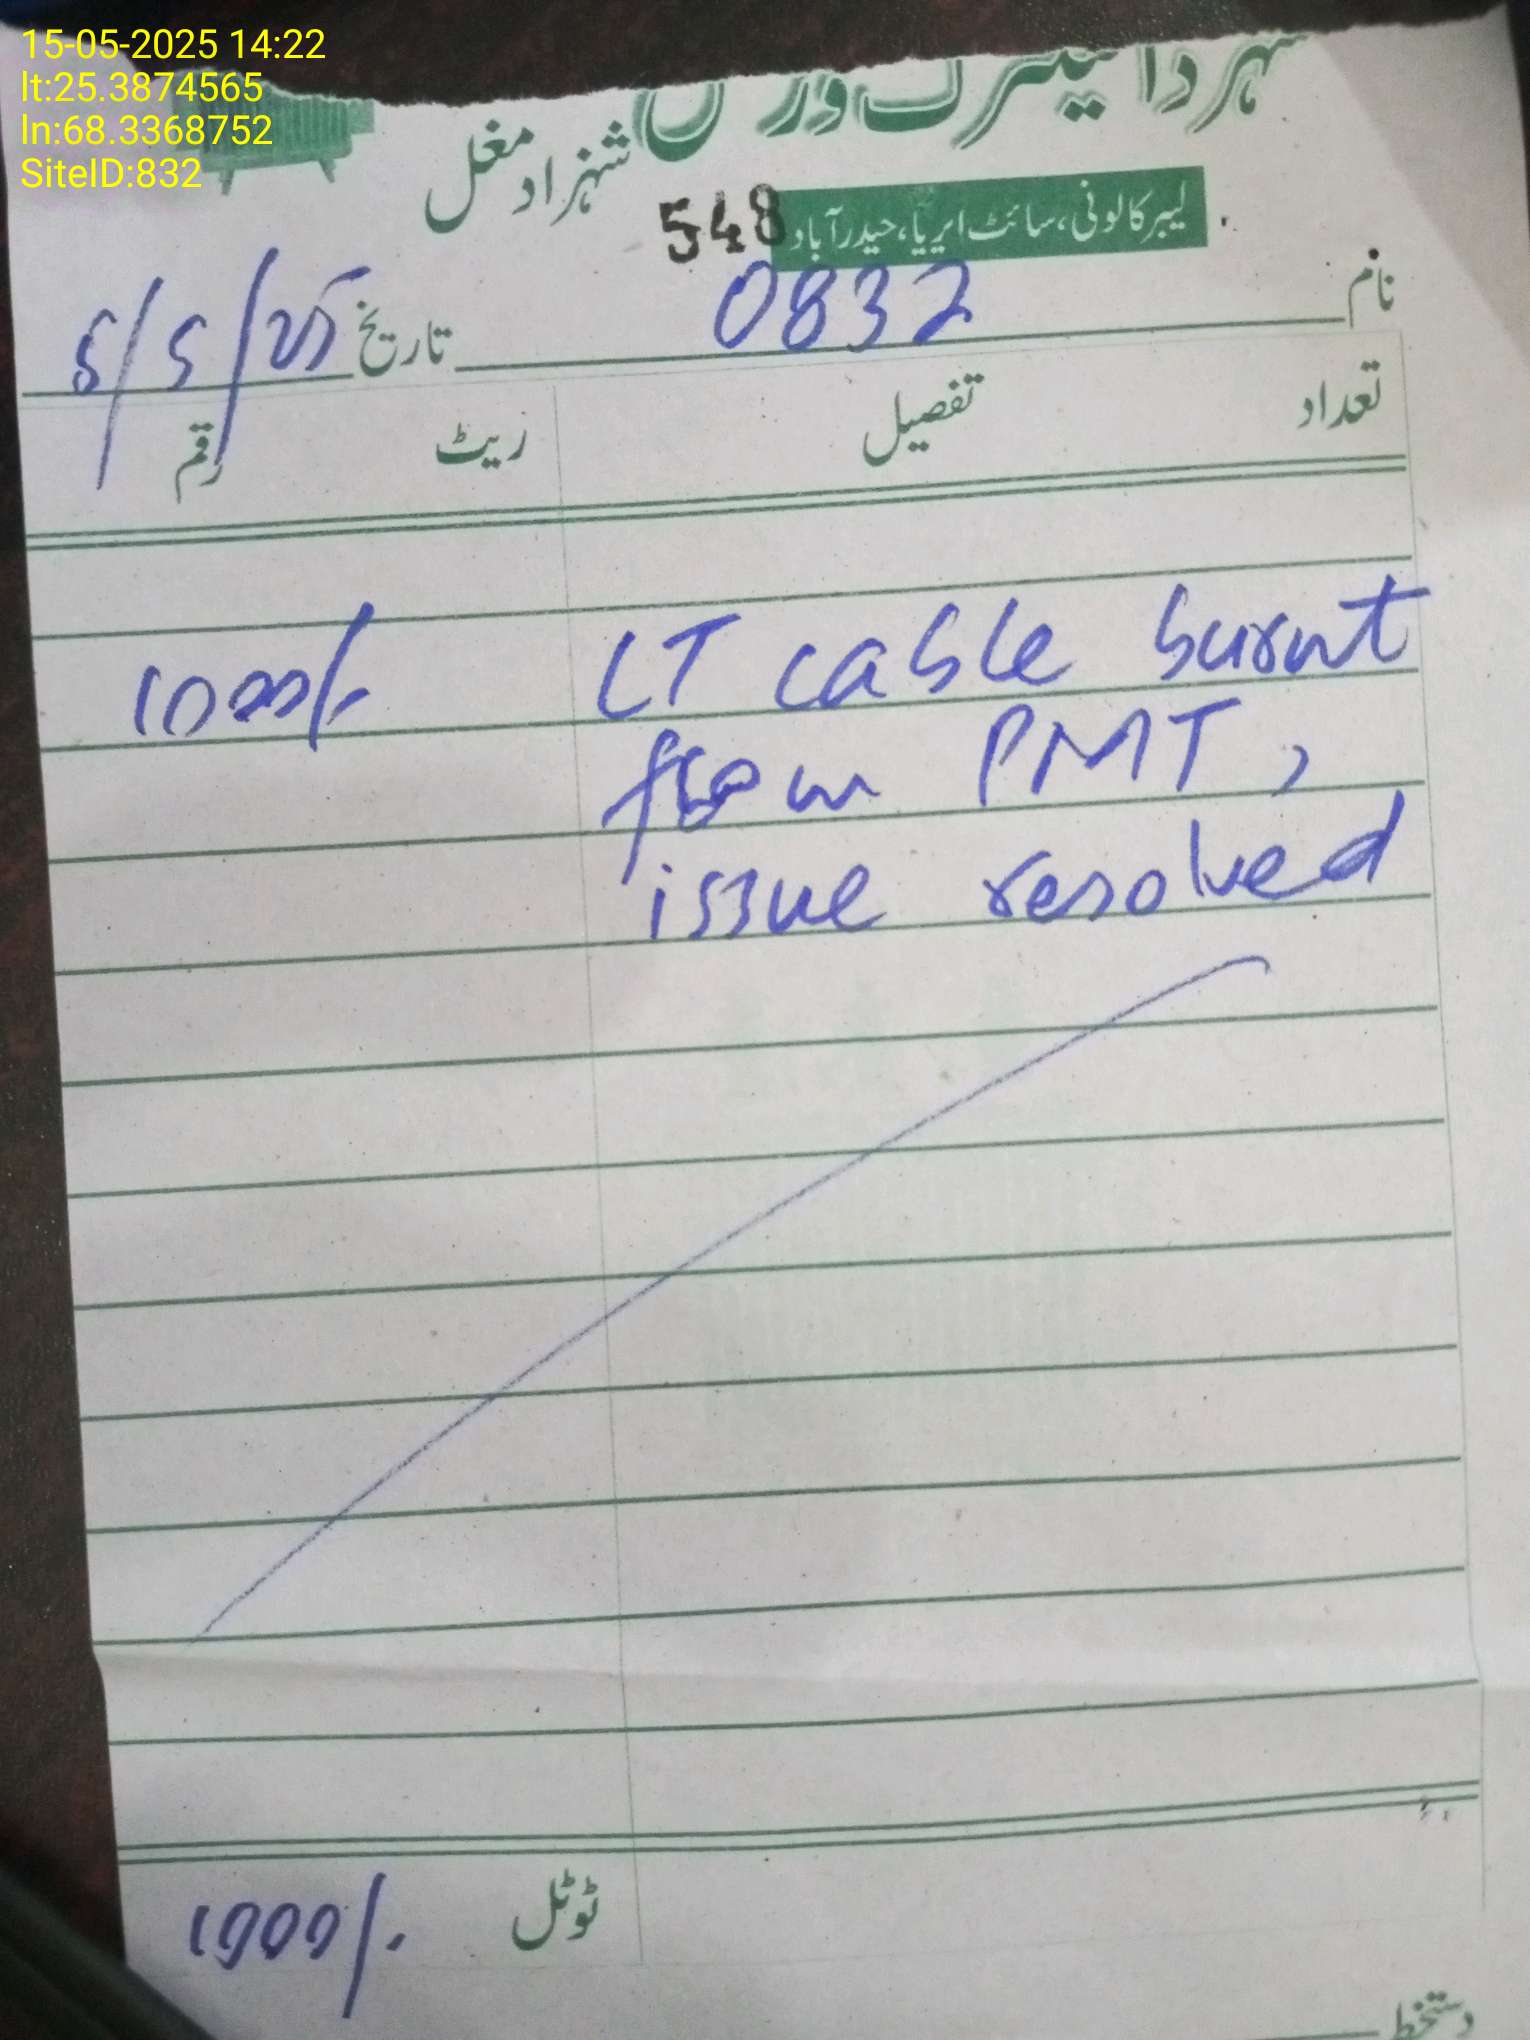 15-05-2025 14:22
lt:25.3874565
ln:68.3368752
SiteID:832
شہزاد مغل
لیبر کالونی، سائٹ ایریا، حیدرآباد
548
نام 0832 تاریخ 5/5/25
تعداد تفصیل ریٹ رقم
LT cable burnt 1000/-
from PMT,
issue resolved
ٹوٹل 1000/-
دستخط